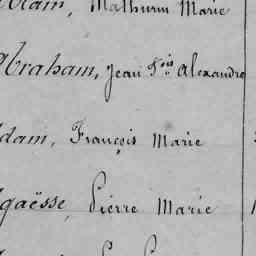 Mathurin Marie
Abraham, Jean Fois Alexandre
Adam, François Marie
Agaësse, Pierre Marie